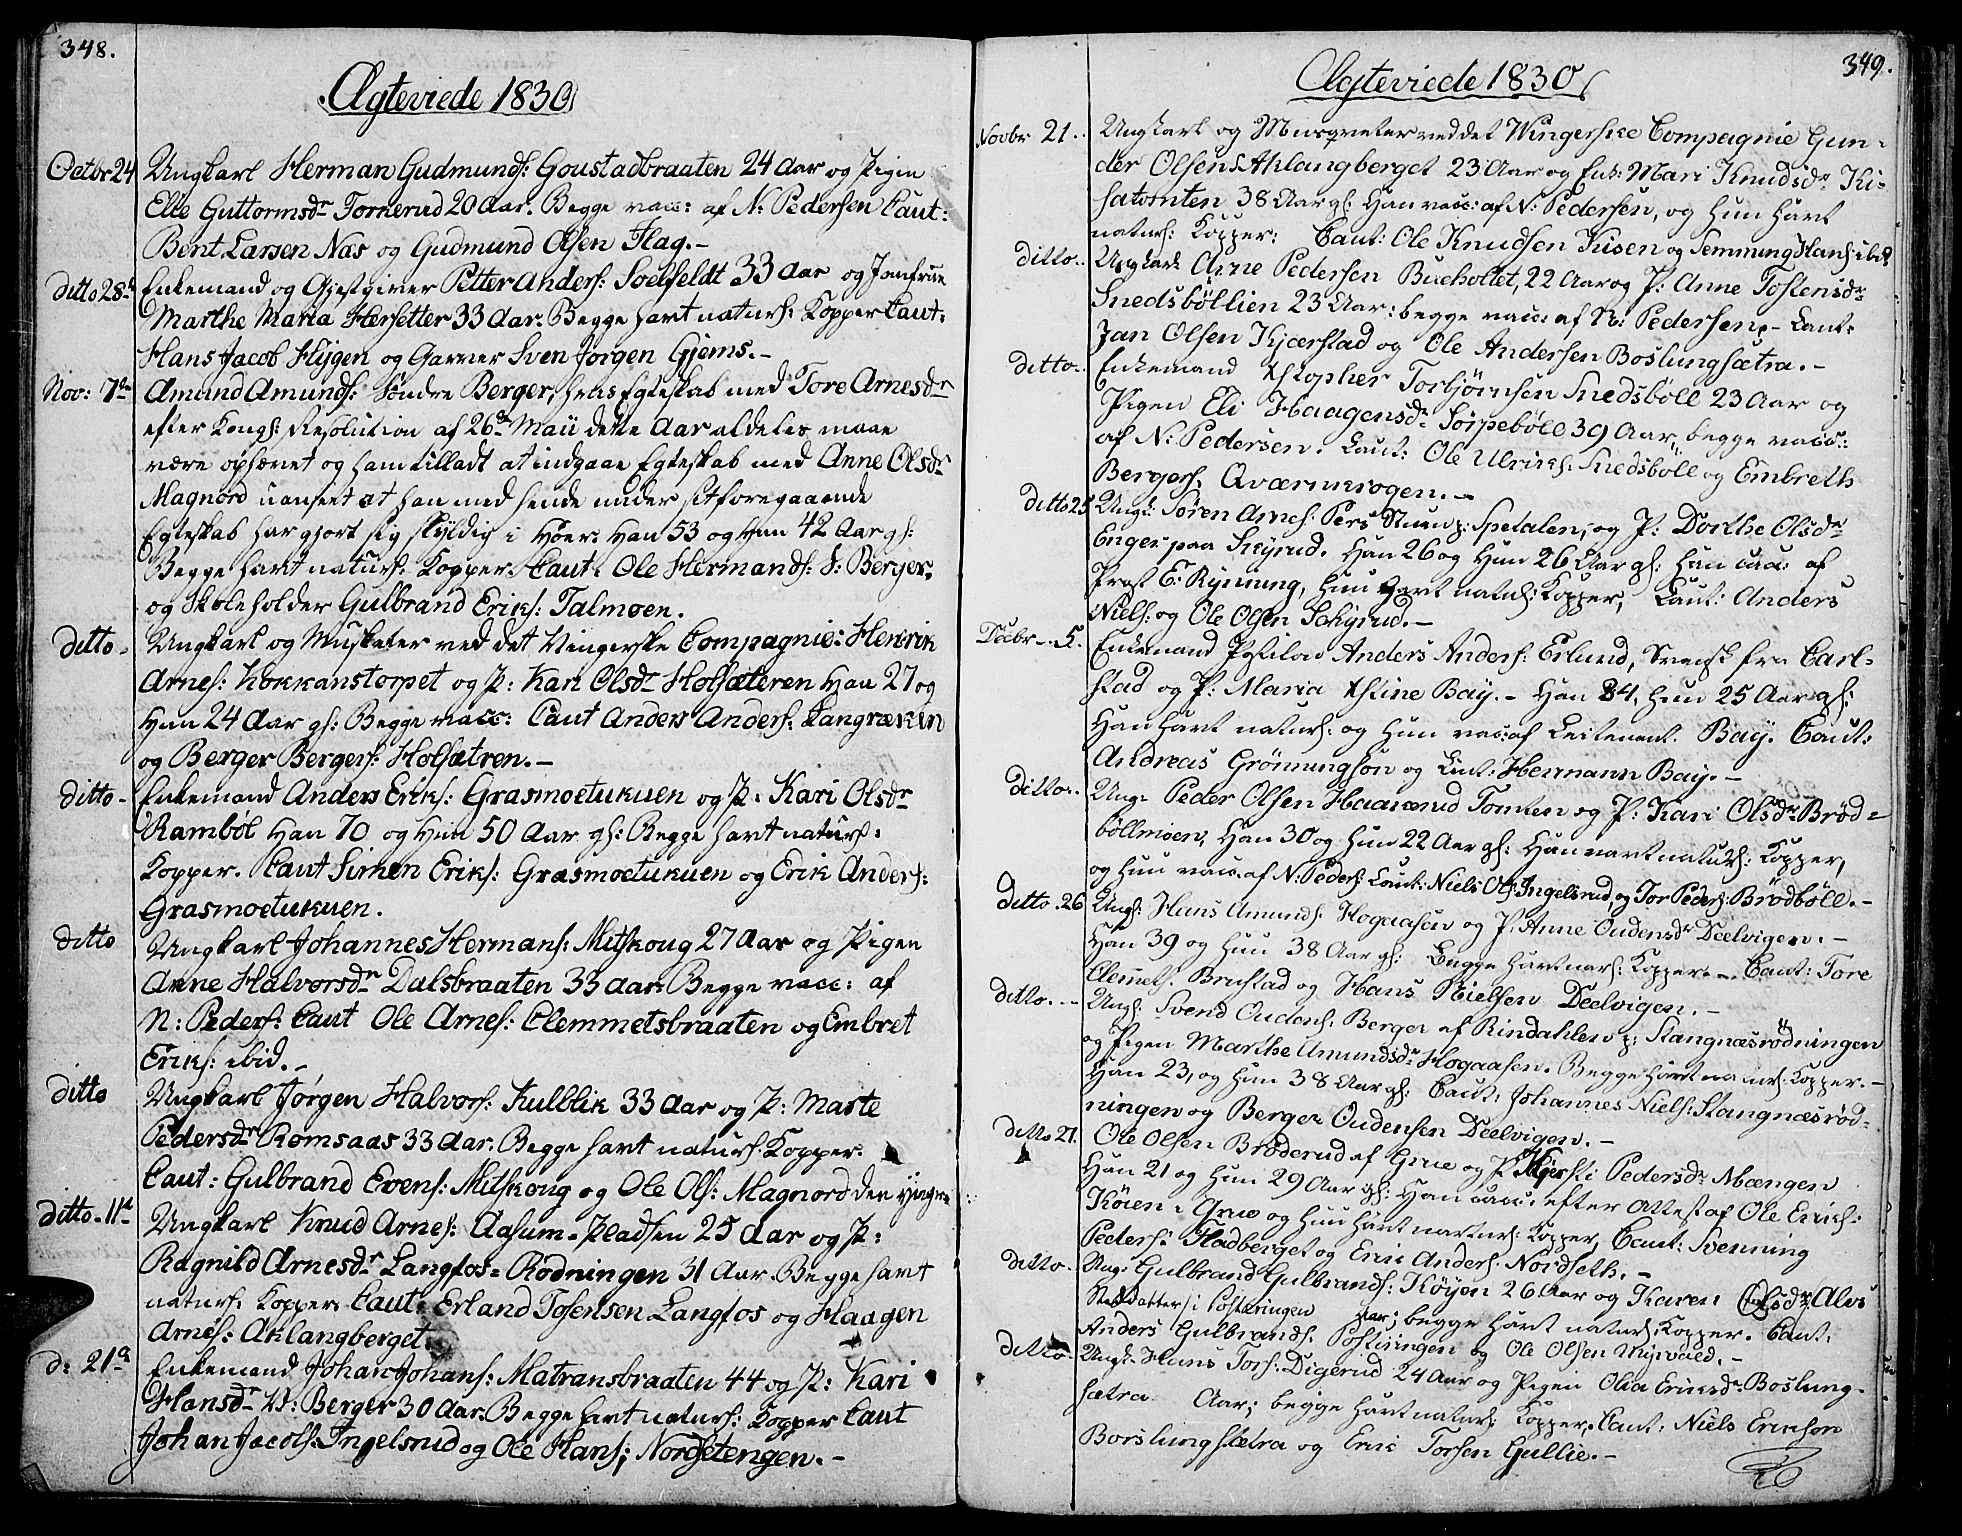 348.
Ægteviede 1830
Octbr 24 Ungkarl Herman Gudmunds: Goustadbraaten 24 Aar og Pigen
Elie Guttormsdr Tornerud 20 Aar. Begge vacc: af N: Pedersen Caut:
Bent Larsen Næs og Gudmund Olsen Flag.-
ditto 28de Enkemand og Gjestgiver Petter Anders: Soelfeldt 33 Aar og Jomfrue
Marthe Maria Hersetter 33 Aar. Begge havt naturl: Kopper Caut:
Hans Jacob Hijgen og Garver Sven Jørgen Gjems.-
Nov: 7de Amund Amunds: Søndre Berger, hvis Egteskab med Tore Arnesdr
efter Kongl: Resolution af 26de Maii dette Aar aldeles maae
være ophævet og ham tilladt at indgaae Egteskab med Anne Olsdr
Magnord uanseet at han med hende under sit foregaaende
Egteskab har gjort sig skyldig i Hoer. Han 53 og Hun 42 Aar gl:
Begge havt naturl: Kopper. Caut: Ole Hermands: S: Berger,
og Skoleholder Gulbrand Eriks: Talmoen.
ditto- Ungkarl og Musketer ved det Vingerske Compagnie: Henrik
Arnes: Kokkanstorpet og P: Kari Olsdr Holsæteren Han 27 og
Hun 24 Aar gl: Begge vacc: Caut Anders Anders: Langrækin
og Berger Bergers: Holsætren.-
ditto- Enkemand Anders Eriks: Grasmoetukuen og P: Kari Olsdr
Rambøl Han 70 og Hun 50 Aar gl: Begge havt naturl:
Kopper. Caut Simen Eriks: Grasmoetukuen og Erik Anders:
Grasmoetukuen.
ditto Ungkarl Johannes Hermans: Mitskoug 27 Aar og Pigen
Anne Halvorsdr Dalsbraaten 33 Aar. Begge vacc: af
N: Peders: Caut Ole Arnes: Clemmetsbraaten og Embret
Eriks: ibid.-
ditto Ungkarl Jørgen Halvors: Kulblik 33 Aar og P: Marte
Pedersdr Romsaas 33 Aar. Begge havt naturl: Kopper.
Caut: Gulbrand Evens: Mitskoug og Ole Ols: Magnord den yngre
ditto-11te Ungkarl Knud Arnes: Aasum-Pladsen 25 Aar og P:
Ragnild Arnesdr Langfos=Rødningen 31 Aar. Begge havt
naturl: Kopper. Caut: Erland Tosensen Langfos og Haagen
Arnes: Aklangberget.
d: 21de Enkemand Johan Johans: Matransbraaten 44 og P: Kari
Hansdr V: Berger 30 Aar. Begge havt naturl: Kopper Caut
Johan Jacobs: Ingelsrud og Ole Hans: Nordsetengen.-
349.
Ægteviede 1830
Novbr 21.. Ungkarl og Musqueter ved det Wingerske Compagnie Gun-
der Olsen Ahlangberget 23 Aar og Enk: Mari Knudsdr Ki-
satomten 38 Aar gl: Han vacc: af N: Pedersen, og Hun havt
naturl: Kopper: Caut: Ole Knudsen Kisen og Semmung Hans: ibid
ditto.. Ungkarl Arne Pedersen Bucholtet, 22 Aar og P: Anne Tostensdr
Snedsböllien 23 Aar: begge vacc: af N: Pedersen,- Caut:
Jan Olsen Kjærstad og Ole Andersen Boslungsætra.-
ditto.. Enkemand Chstopher Torbjørnsen Snedsböll 23 Aar og
Pigen Eli Haagensdr Sörpeböll 39 Aar, begge vacc:
af N: Pedersen. Caut: Ole Ulrichs: Snedsböll og Embreth
Bergers: Qværnkrogen.-
ditto 25 Ungk: Sören Arnes: Pers Stuen p: Spetalen, og P: Dorthe Olsdr
Enger paa Skyrud. Han 26 og Hun 26 Aar gl: Han vacc: af
Prost E: Rynning, hun havt naturl: Kopper, Caut: Anders
Niels: og Ole Olsen Schyrud.-
Decbr--5. Enkemand Postilon Anders Anders: Erlund, Svensk fra Carl-
stad og P: Maria Chstine Bay.- Han 34, hun 25 Aar gl:
Han havt naturl: og hun vacc: af Leitenent Bay. Caut:
Andreas Grönningson og Lint: Hermann Bay.-
ditto.. Ung: Peder Olsen Haarerud Tomten og P: Kari Olsdr Bröd=
böllmoen, Han 30 og hun 22 Aar gl: Han havt naturl: Kopper,
og hun vacc. af N: Peders: Caut: Niels Ols: Ingelsrud, og Tor Peders: Brödböll.-
ditto.26 Ungk: Hans Amunds: Hogaasen og P: Anne Oudensdr Deelvigen.-
Han 39 og hun 38 Aar gl: Begge havt narl: Kopper.- Caut: Tore
Clemets: Brustad og Hans Nielsen Deelvigen.-
ditto.-- Ungk: Svend Oudens: Berger af Rindahlen p: Stangnæsrödningen
og Pigen Marthe Amundsdr Hogaasen. Begge havt naturl: Kopper.-
Han 23, og hun 38 Aar gl: Caut: Johannes Niels: Stangnæsröd-
ningen og Berger Oudensen Deelvigen.-
ditto 27. Ole Olsen Bröderud af Grue og P: Kjersti Pedersdr Mængen
Han 21 og hun 29 Aar gl: Han vacc: efter Attest af Ole Erichs:
Köien i Grue og hun havt naturl: Kopper, Caut: Svenning
Peders: Fladberget og Eric Anders: Nordseth.-
ditto- Ung: Gulbrand Gulbrands: Köyen 26 Aar og Karen Olsdr Alos
Steddatter i Postæringen Aar; begge havt naturl: Kopper. Caut:
Anders Gulbrands: Postæringen og Ole Olsen Myrvold.-
ditto- Ungk: Hans Tors: Digerud 24 Aar og Pigen Olia Ericksdr Boslung-
sætra Aar; begge havt naturl: Kopper, Caut: Niels Erichsen
Borslungsætra og Eric Torsen Gullie.-